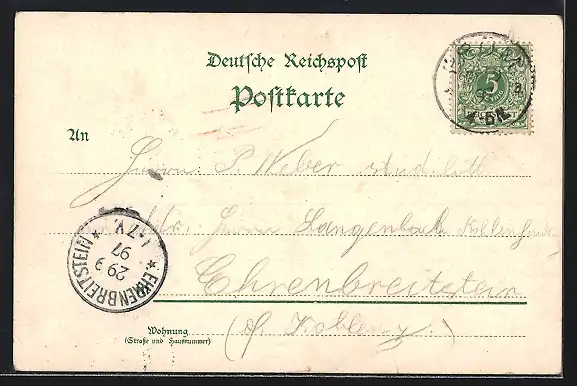 Deutsche Reichspost
Postkarte
5
An
Herrn P. Weber
Herrn Langenbach
Ehrenbreitstein
Wohnung
(Straße und Hausnummer)
(b/ Koblenz)
* EHRENBREITSTEIN *
29 9
97
1-7 V.